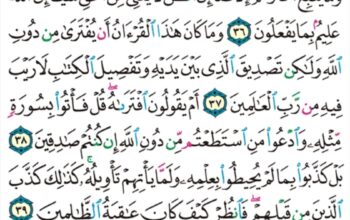 عَلِيمٌۢ بِمَا يَفْعَلُونَ ٣٦ وَمَا كَانَ هَٰذَا ٱلْقُرْءَانُ أَن يُفْتَرَىٰ مِن دُونِ
ٱللَّهِ وَلَٰكِن تَصْدِيقَ ٱلَّذِى بَيْنَ يَدَيْهِ وَتَفْصِيلَ ٱلْكِتَٰبِ لَا رَيْبَ
فِيهِ مِن رَّبِّ ٱلْعَٰلَمِينَ ٣٧ أَمْ يَقُولُونَ ٱفْتَرَىٰهُ ۖ قُلْ فَأْتُوا۟ بِسُورَةٍ
مِّثْلِهِۦ وَٱدْعُوا۟ مَنِ ٱسْتَطَعْتُم مِّن دُونِ ٱللَّهِ إِن كُنتُمْ صَٰدِقِينَ ٣٨
بَلْ كَذَّبُوا۟ بِمَا لَمْ يُحِيطُوا۟ بِعِلْمِهِۦ وَلَمَّا يَأْتِهِمْ تَأْوِيلُهُۥ ۚ كَذَٰلِكَ كَذَّبَ
ٱلَّذِينَ مِن قَبْلِهِمْ ۖ فَٱنظُرْ كَيْفَ كَانَ عَٰقِبَةُ ٱلظَّٰلِمِينَ ٣٩